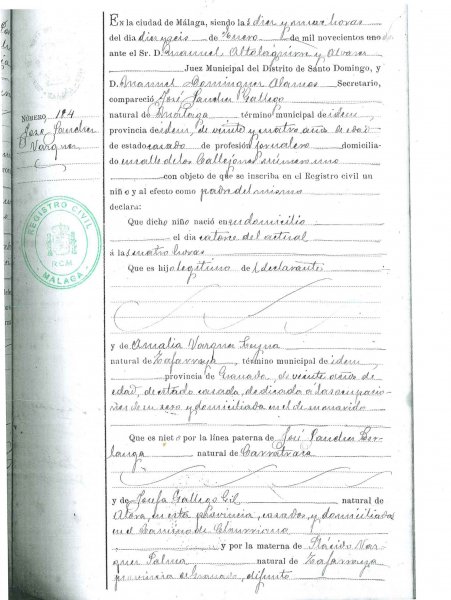 En la ciudad de Málaga, siendo las diez y nueve horas
del día diez y seis de Enero de mil novecientos uno
ante el Sr. D. Manuel Altolaguirre y Alvarez
Juez Municipal del Distrito de Santo Domingo, y
D. Manuel Dominguez Alamos Secretario,
compareció José Sanchez Gallego
natural de Málaga, término municipal de idem,
provincia de idem, de veinte y cuatro años de edad
de estado casado de profesión jornalero domicilia-
do en calle de los Callejones número uno
con objeto de que se inscriba en el Registro civil un
niño y al efecto como padre del mismo
declara:
Que dicho niño nació en su domicilio
el día catorce del actual
á las cuatro horas
Que es hijo legítimo del declarante
y de Amalia Vargas Reyna
natural de Zafarraya, término municipal de idem
provincia de Granada, de veinte años de
edad, de estado casada, dedicada á las ocupacio-
nes de su sexo y domiciliada en el de su marido
Que es nieto por la línea paterna de José Sanchez Ber-
langa natural de Carratraca
y de Josefa Gallego Gil natural de
Alora, en esta provincia, casados, y domiciliados
en el Camino de Churriana
y por la materna de Plácido Var-
gas Palma natural de Zafarraya
provincia de Granada, difunto
NÚMERO 124
José Sanchez
Vargas
REGISTRO CIVIL
RCM
MALAGA